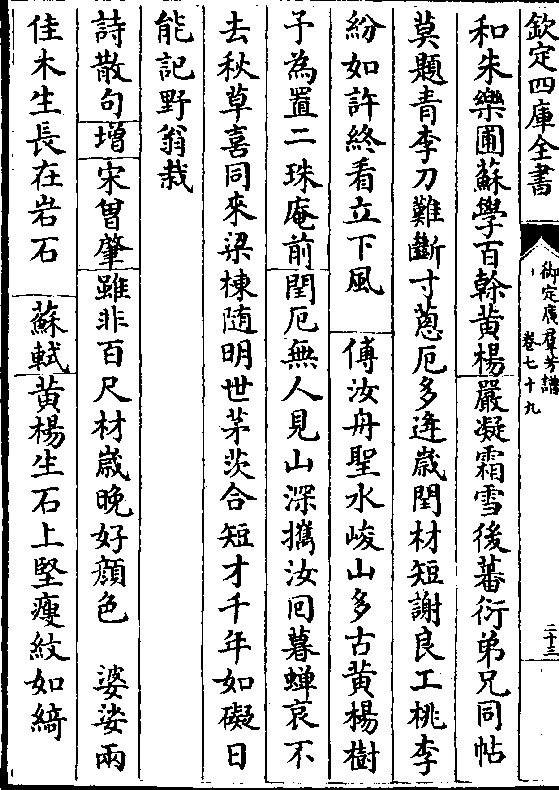 欽定四庫全書
御定廣羣芳譜
卷七十九
二十三
和朱樂圃蘇學百榦黄楊嚴凝霜雪後蕃衍弟兄同帖
莫題青李刀難斷寸蔥厄多逢歲閏材短謝良工桃李
紛如許終看立下風　傅汝舟聖水峻山多古黄楊樹
予為置二珠庵前閏厄無人見山深擕汝回暮蟬哀不
去秋草喜同來梁棟隨明世茅茨合短才千年如礙日
能記野翁栽
詩散句增宋曾肇雖非百尺材歲晚好顔色　婆娑兩
佳木生長在岩石　蘇軾黄楊生石上堅瘦紋如綺